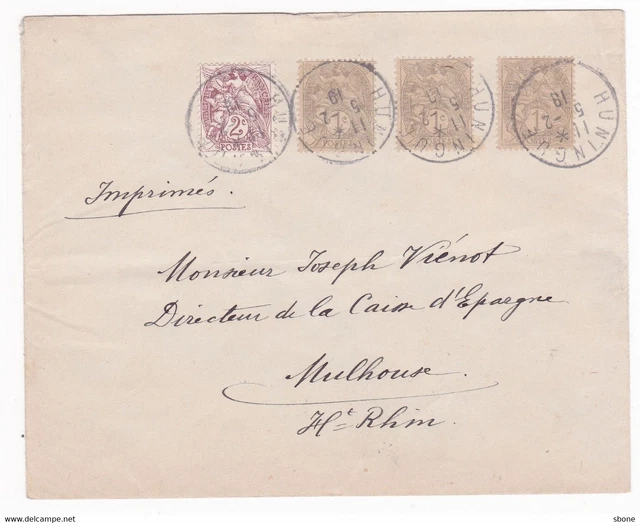 2c
POSTES
1c
1c
1c
HUNINGUE
HUNINGUE
HUNINGUE
Imprimés.
Monsieur Joseph Viénot
Directeur de la Caisse d'Epargne
Mulhouse.
Ht Rhin.
sbone
www.delcampe.net